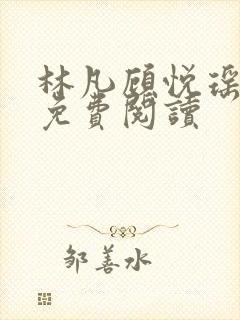 林凡顾悦瑶
免費閱讀
邹善水